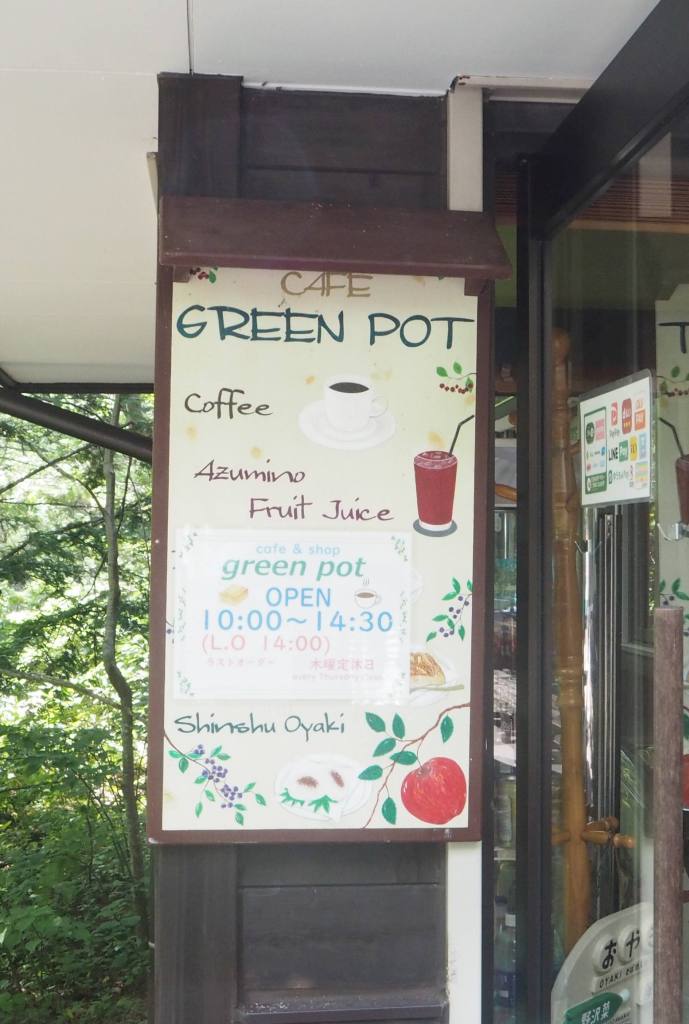 CAFE
GREEN POT
Coffee
Azumino
Fruit Juice
cafe & shop
green pot
OPEN
10:00～14:30
(L.O 14:00)
ラストオーダー
木曜定休日
every Thursday close
Shinshu Oyaki
LINE
Pay
T
おや
OYAKI
野沢菜